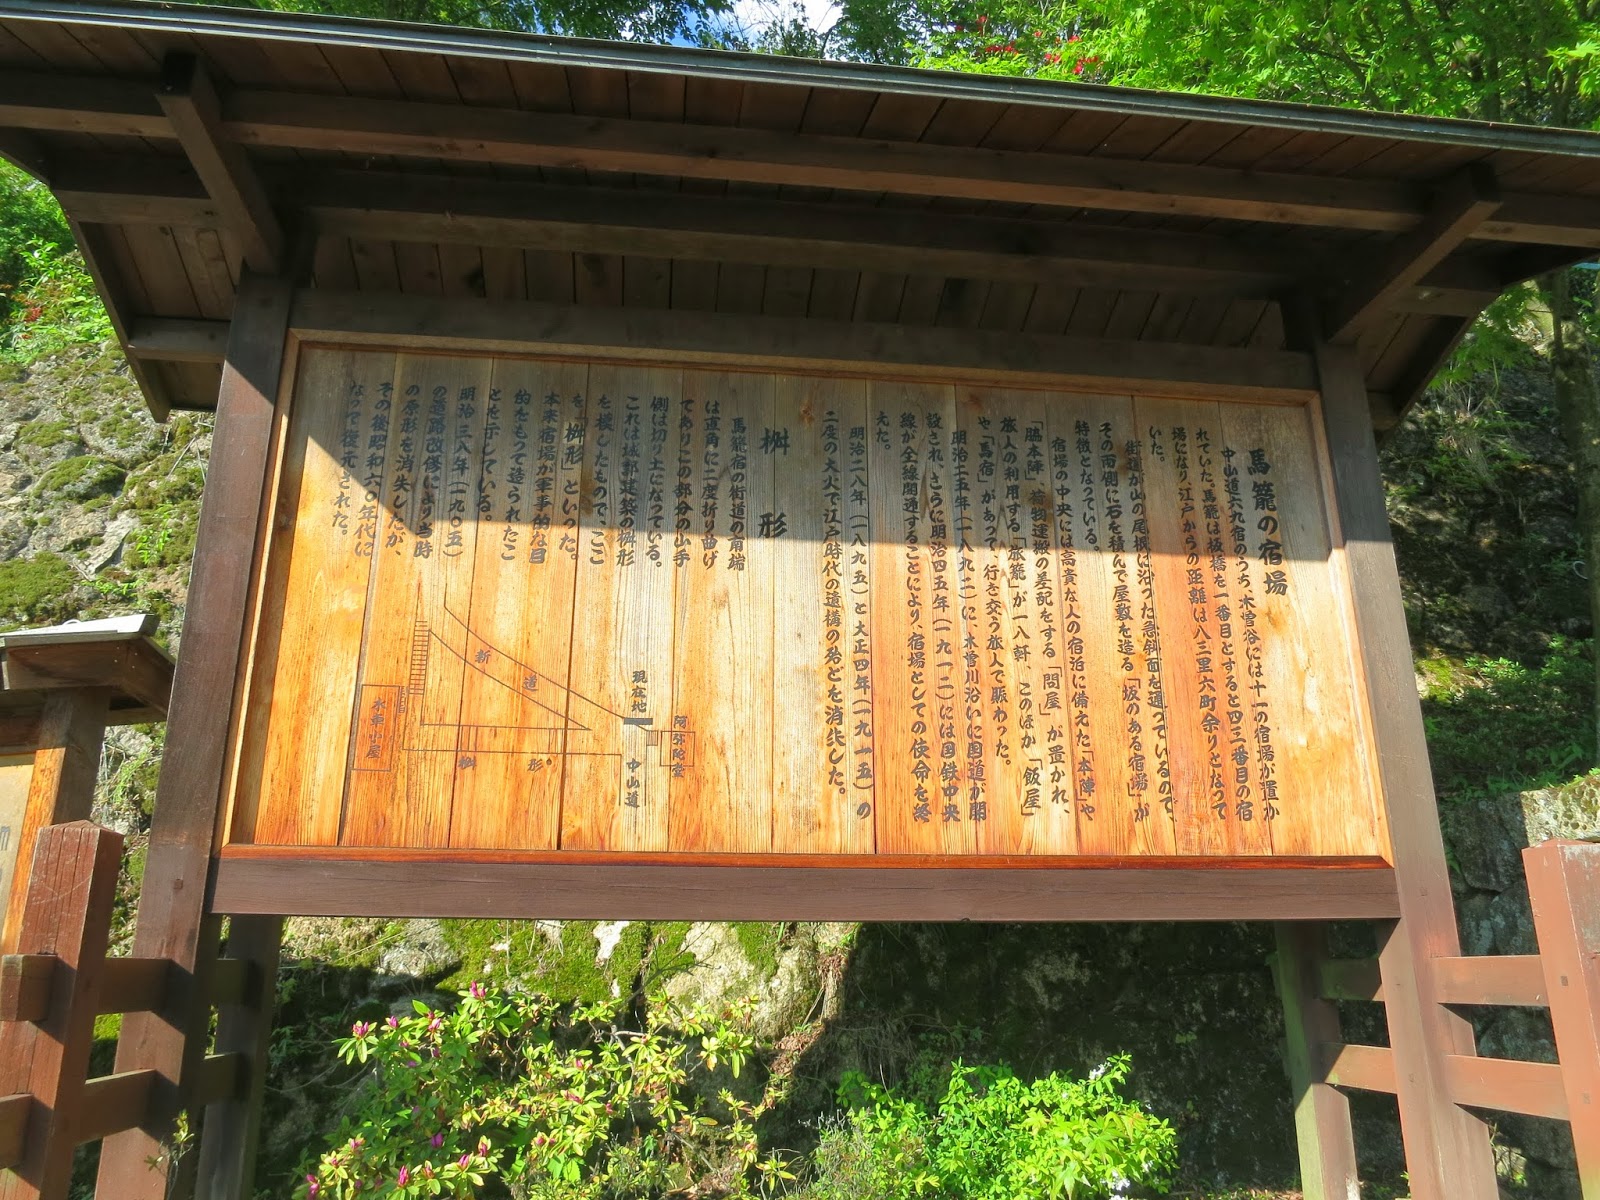 馬籠の宿場
中山道六九宿のうち、木曽谷には十一の宿場が置か
れていた。馬籠は板橋を一番目とすると四三番目の宿
場になり、江戸からの距離は八三里六町余りとなって
いた。
街道が山の尾根に沿った急斜面を通っているので、
その両側に石を積んで屋敷を造る「坂のある宿場」が
特徴となっている。
宿場の中央には高貴な人の宿泊に備えた「本陣」や
「脇本陣」、荷物運搬の差配をする「問屋」が置かれ、
旅人の利用する「旅籠」が一八軒、このほか「飯屋」
や「馬宿」があって、行き交う旅人で賑わった。
明治二五年(一八九二)に、木曽川沿いに国道が開
設され、さらに明治四五年(一九一二)には国鉄中央
線が全線開通することにより、宿場としての使命を終
えた。
明治二八年(一八九五)と大正四年(一九一五)の
二度の大火で江戸時代の遺構の殆どを消失した。
桝形
馬籠宿の街道の南端
は直角に二度折り曲げ
てありこの部分の山手
側は切り土になっている。
これは城郭建築の桝形
を模したもので、ここ
を「桝形」といった。
本来宿場が軍事的な目
的をもって造られたこ
とを示している。
明治三八年(一九〇五)
の道路改修により当時
の原形を消失したが、
その後昭和六〇年代に
なって復元された。
阿弥陀堂
現在地
中山道
新道
桝形
水車小屋